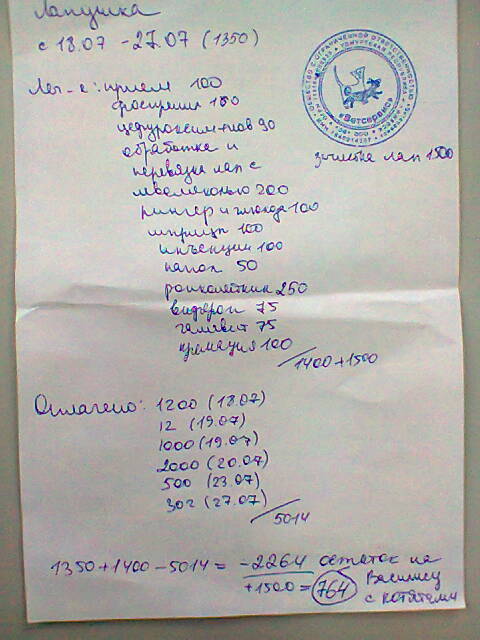 Лапушка
с 18.07 - 27.07 (1350)
Леч-е: прием 100
цефуроксим+нов 90
обработка и
перевязка лап с
левомеколью 200
рингер и глюкоза 100
шприцы 100
инъекции 100
напол 50
ронколейкин 250
75
гамавит 75
кремация 100
/1400+1500
зачистка лап 1500
«Ветсервис»
Оплачено: 1200 (18.07)
12 (19.07)
1000 (19.07)
2000 (20.07)
500 (23.07)
302 (27.07)
/5014
1350+1400-5014= -2264 остаток на
+1500= 764 Василису
с котятами